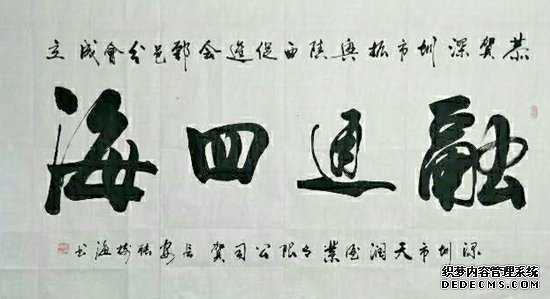 恭贺深圳市振兴陕西促进会郅邑分會成立
融通四海
深圳市天润實業有限公司贺 长安 張樹海书
织梦内容管理系统
DEDECMS.COM